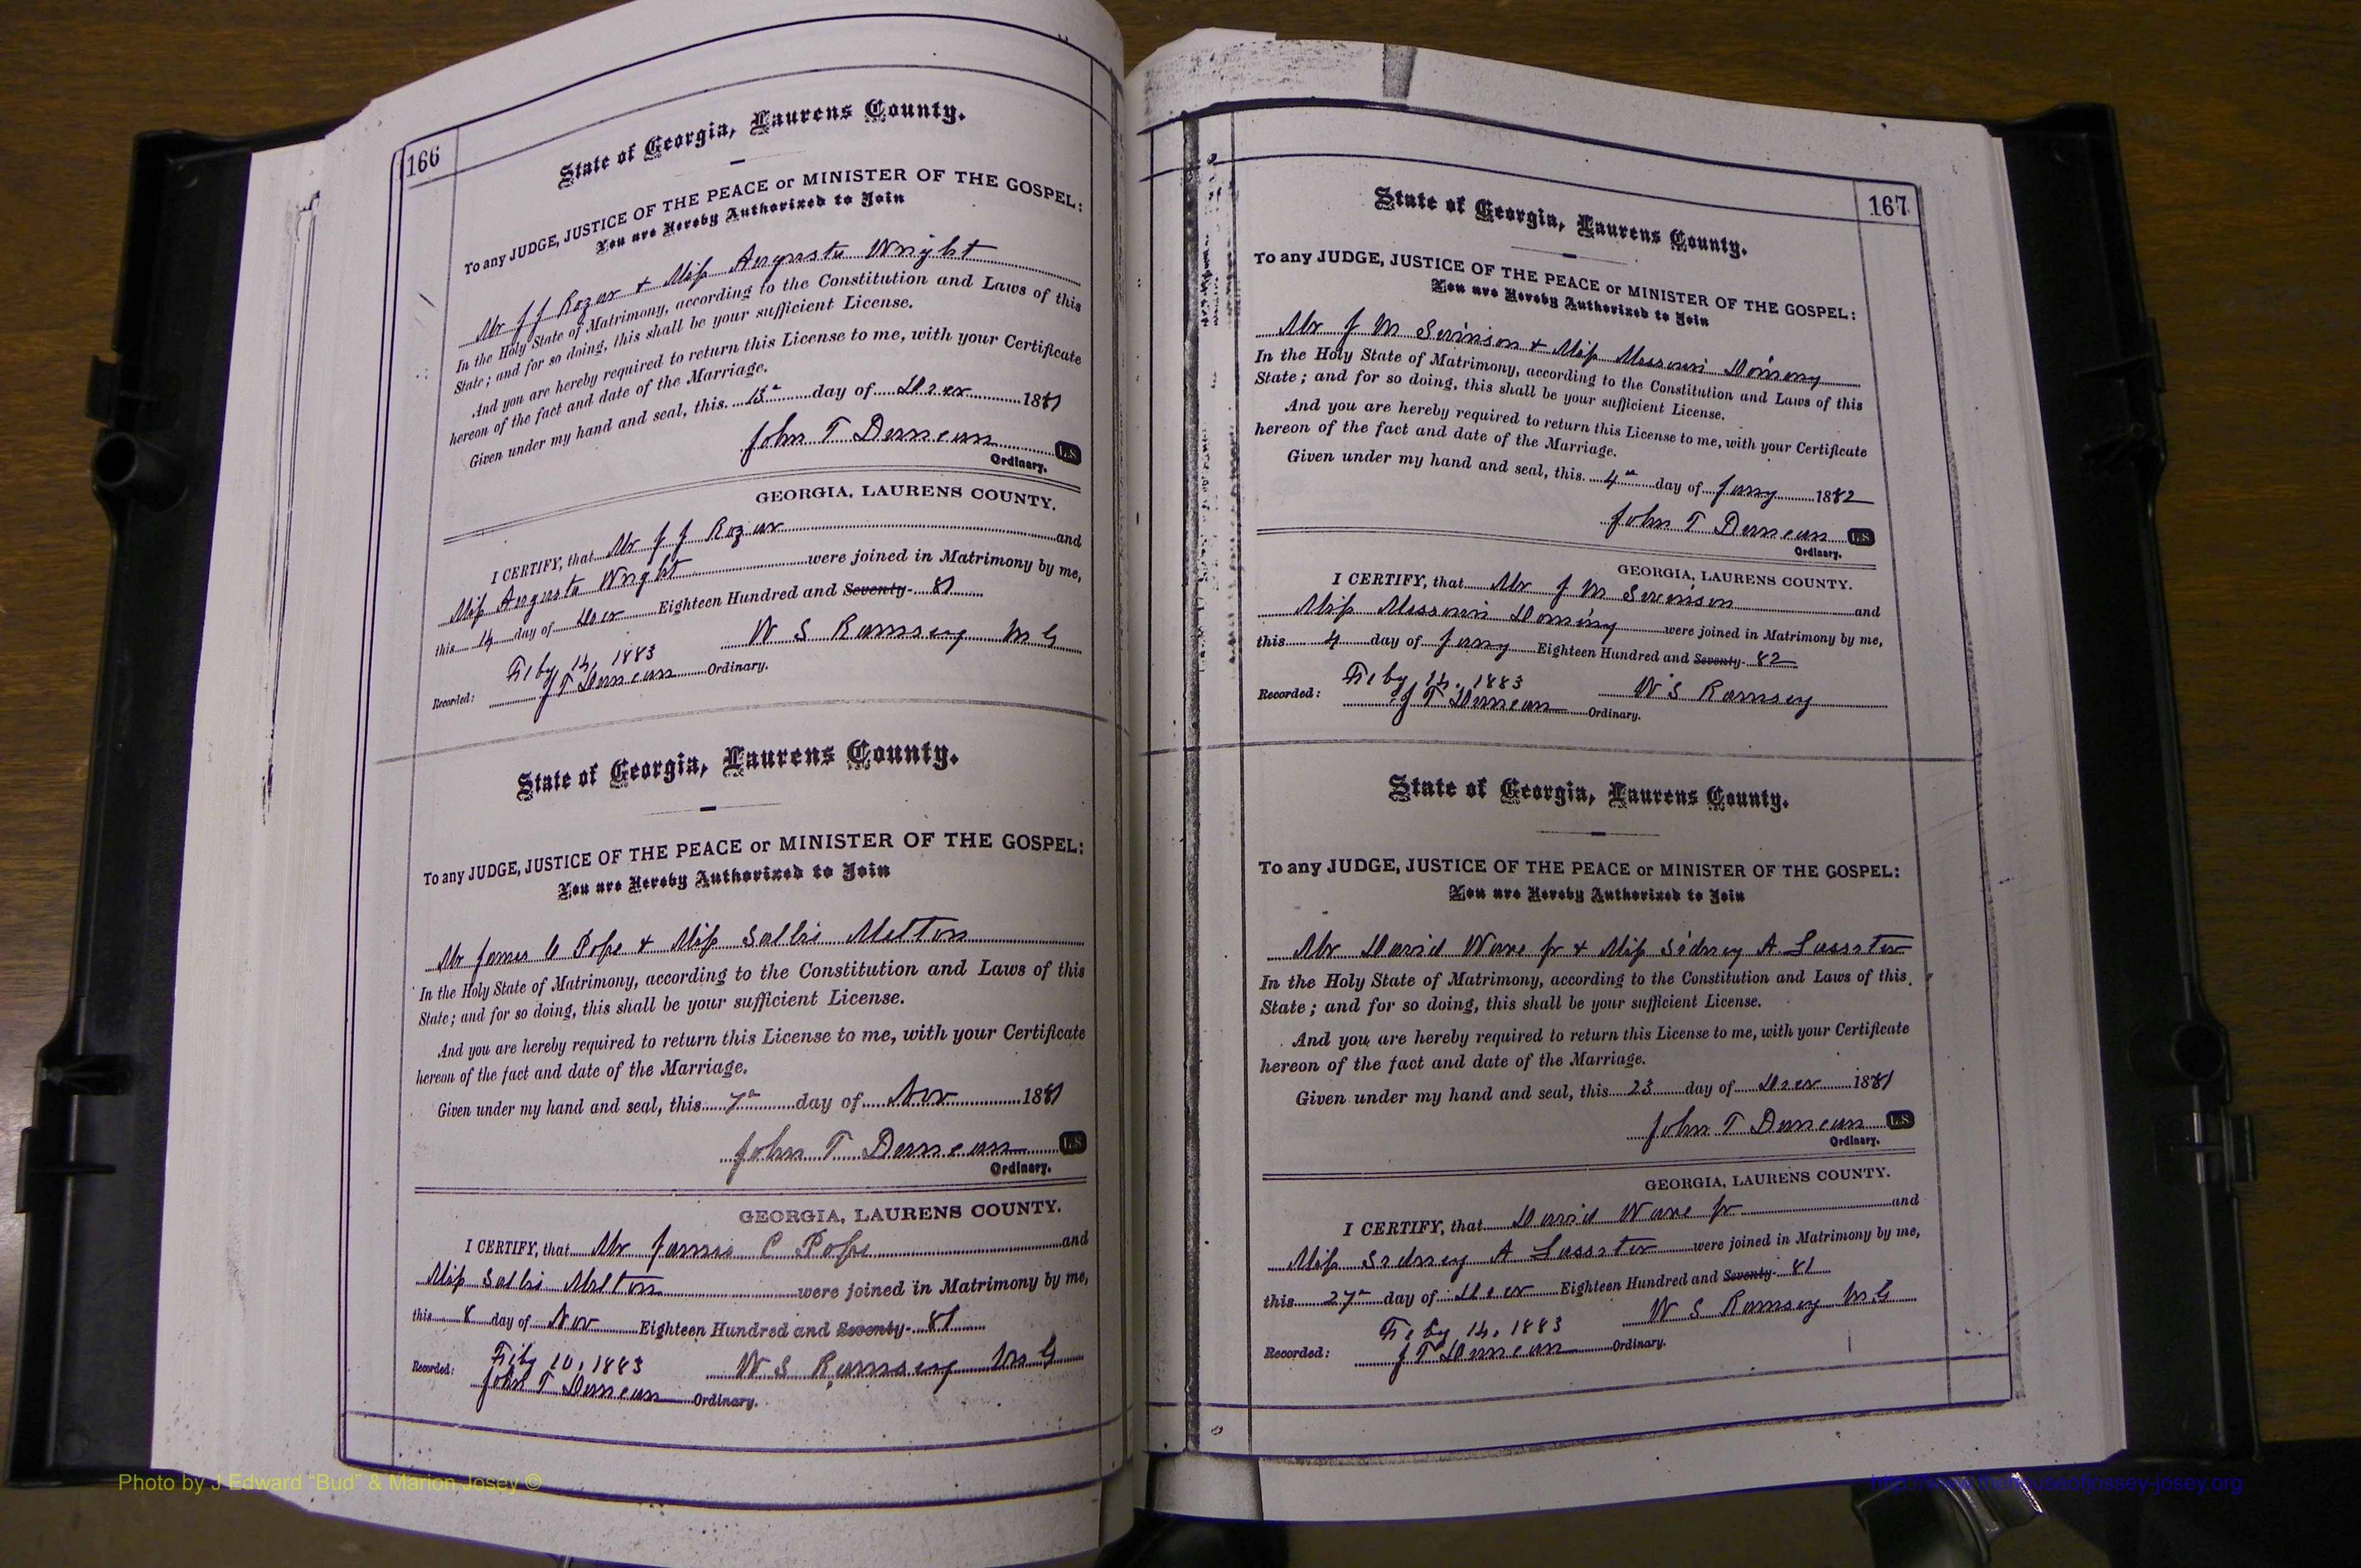 166
State of Georgia, Laurens County.
To any JUDGE, JUSTICE OF THE PEACE or MINISTER OF THE GOSPEL:
You are Hereby Authorized to Join
Mr J J Rozar & Miss Augusta Wright
In the Holy State of Matrimony, according to the Constitution and Laws of this
State; and for so doing, this shall be your sufficient License.
And you are hereby required to return this License to me, with your Certificate
hereon of the fact and date of the Marriage.
Given under my hand and seal, this 13th day of Decr 1881
John T Duncan L.S.
Ordinary.
GEORGIA, LAURENS COUNTY.
I CERTIFY, that Mr J J Rozar and
Miss Augusta Wright were joined in Matrimony by me,
this 14 day of Decr Eighteen Hundred and Seventy- 81
W S Ramsey M G
Feby 14, 1883
Recorded: J T Duncan Ordinary.
State of Georgia, Laurens County.
To any JUDGE, JUSTICE OF THE PEACE or MINISTER OF THE GOSPEL:
You are Hereby Authorized to Join
Mr James C Pope & Miss Sallie Melton
In the Holy State of Matrimony, according to the Constitution and Laws of this
State; and for so doing, this shall be your sufficient License.
And you are hereby required to return this License to me, with your Certificate
hereon of the fact and date of the Marriage.
Given under my hand and seal, this 7th day of Nov 1881
John T Duncan L.S.
Ordinary.
GEORGIA, LAURENS COUNTY.
I CERTIFY, that Mr James C Pope and
Miss Sallie Melton were joined in Matrimony by me,
this 8 day of Nov Eighteen Hundred and Seventy- 81
Feby 10, 1883 W S Ramsey M G
Recorded: John T Duncan Ordinary.
167
State of Georgia, Laurens County.
To any JUDGE, JUSTICE OF THE PEACE or MINISTER OF THE GOSPEL:
You are Hereby Authorized to Join
Mr J M Swinson & Miss Missouri Dominy
In the Holy State of Matrimony, according to the Constitution and Laws of this
State; and for so doing, this shall be your sufficient License.
And you are hereby required to return this License to me, with your Certificate
hereon of the fact and date of the Marriage.
Given under my hand and seal, this 4th day of Jany 1882
John T Duncan L.S.
Ordinary.
GEORGIA, LAURENS COUNTY.
I CERTIFY, that Mr J M Swinson and
Miss Missouri Dominy were joined in Matrimony by me,
this 4 day of Jany Eighteen Hundred and Seventy- 82
Feby 14, 1883 W S Ramsey
Recorded: J T Duncan Ordinary.
State of Georgia, Laurens County.
To any JUDGE, JUSTICE OF THE PEACE or MINISTER OF THE GOSPEL:
You are Hereby Authorized to Join
Mr David Ware Jr & Miss Sidney A Lasseter
In the Holy State of Matrimony, according to the Constitution and Laws of this
State; and for so doing, this shall be your sufficient License.
And you are hereby required to return this License to me, with your Certificate
hereon of the fact and date of the Marriage.
Given under my hand and seal, this 23 day of Decr 1881
John T Duncan L.S.
Ordinary.
GEORGIA, LAURENS COUNTY.
I CERTIFY, that David Ware Jr and
Miss Sidney A Lasseter were joined in Matrimony by me,
this 27th day of Decr Eighteen Hundred and Seventy- 81
W S Ramsey M G
Feby 14, 1883
Recorded: J T Duncan Ordinary.
Photo by J Edward “Bud” & Marion Josey ©